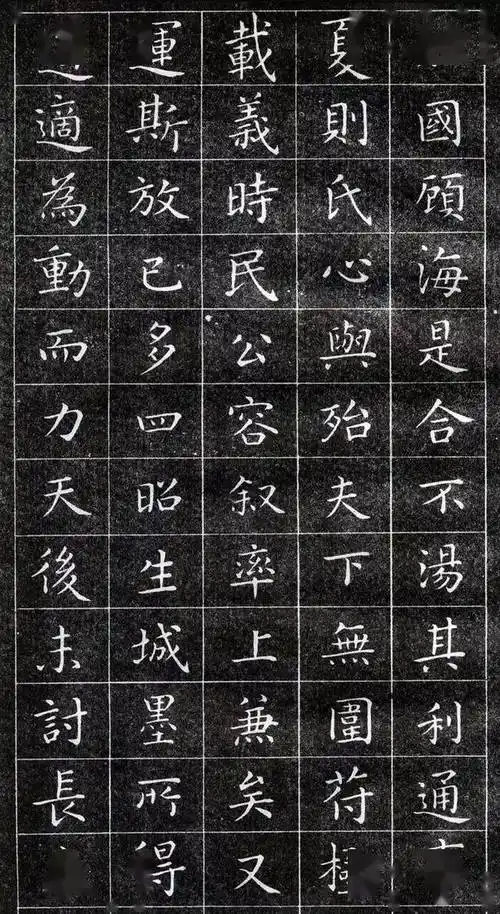 國顧海是合不湯其利通
夏則氏心與殆夫下無圍苻
載義時民公容叙率上兼矣又
運斯放已多四昭生城墨所得
適為動而力天後未討長